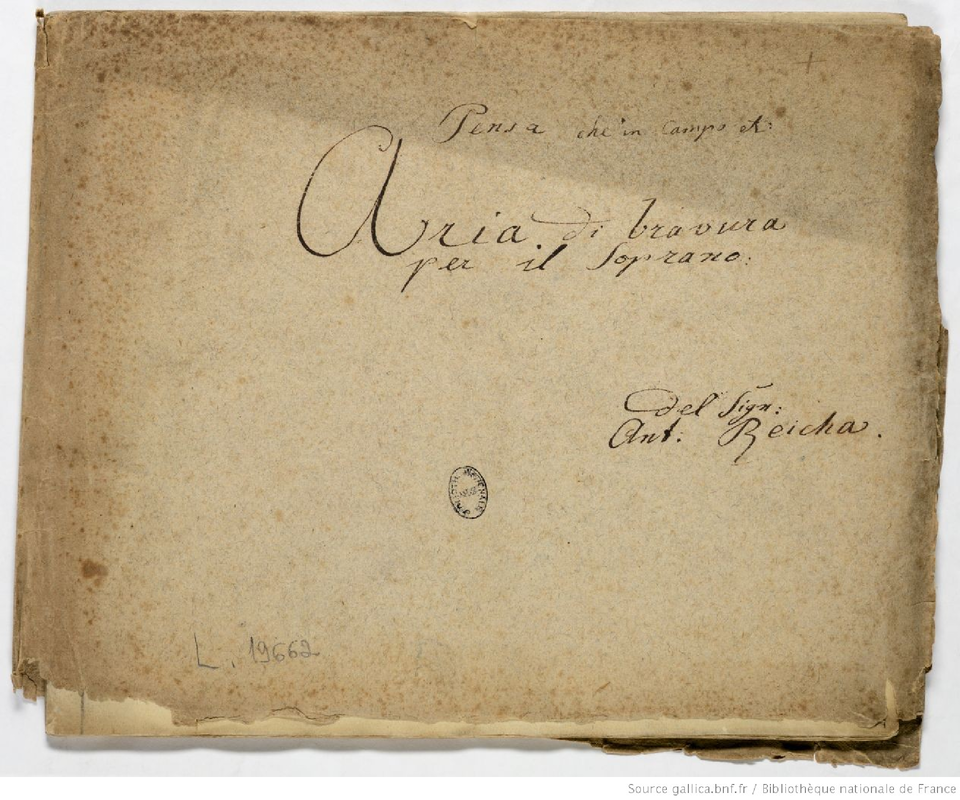 Pensa che in Campo etc:
Aria di bravura
per il Soprano:
del Sign:
Ant: Reicha.
L. 19662
Source gallica.bnf.fr / Bibliothèque nationale de France